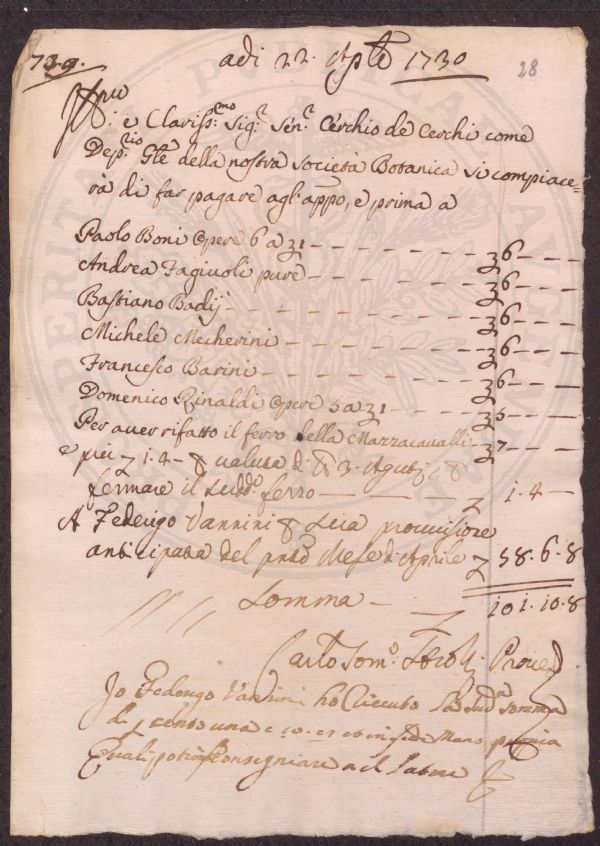 739.
adi 22. Aple 1730
28
Illmo
S: e Clariss:mo Sig.r Sen.r Cerchio de Cerchi come
Dep.rio Gle della nostra Società Botanica si compiace=
rà di far pagare agl'appo, e prima a
Paolo Boni Opere 6 a 1 — — — — — 6 — —
Andrea Fagiuoli pure — — — — — 6 — —
Bastiano Badij — — — — — 6 — —
Michele Mecherini — — — — — 6 — —
Francesco Barini — — — — — 6 — —
Domenico Rinaldi Opere 5 a 1 — — — 5 — —
Per aver rifatto il ferro della Mazzacavalli — 7 — —
e più 1.4 — valuta di 3.
fermare il Sudd.o ferro — — — — 1. 4 —
A Federigo Vannini Sua provvisione
anticipata del pnte Mese d'Aprile 58. 6. 8
Somma — 101. 10. 8
Carlo Tom.o Proved
Io Federigo Vannini ho riceuto la Sud.a somma
di cento una e in Mano propria